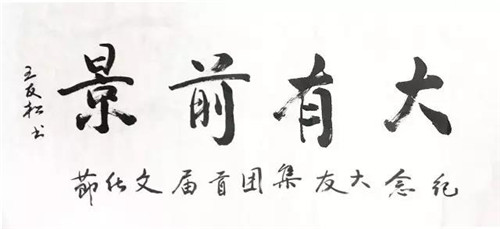 大有前景
纪念大友集团首届文化節
王友松书